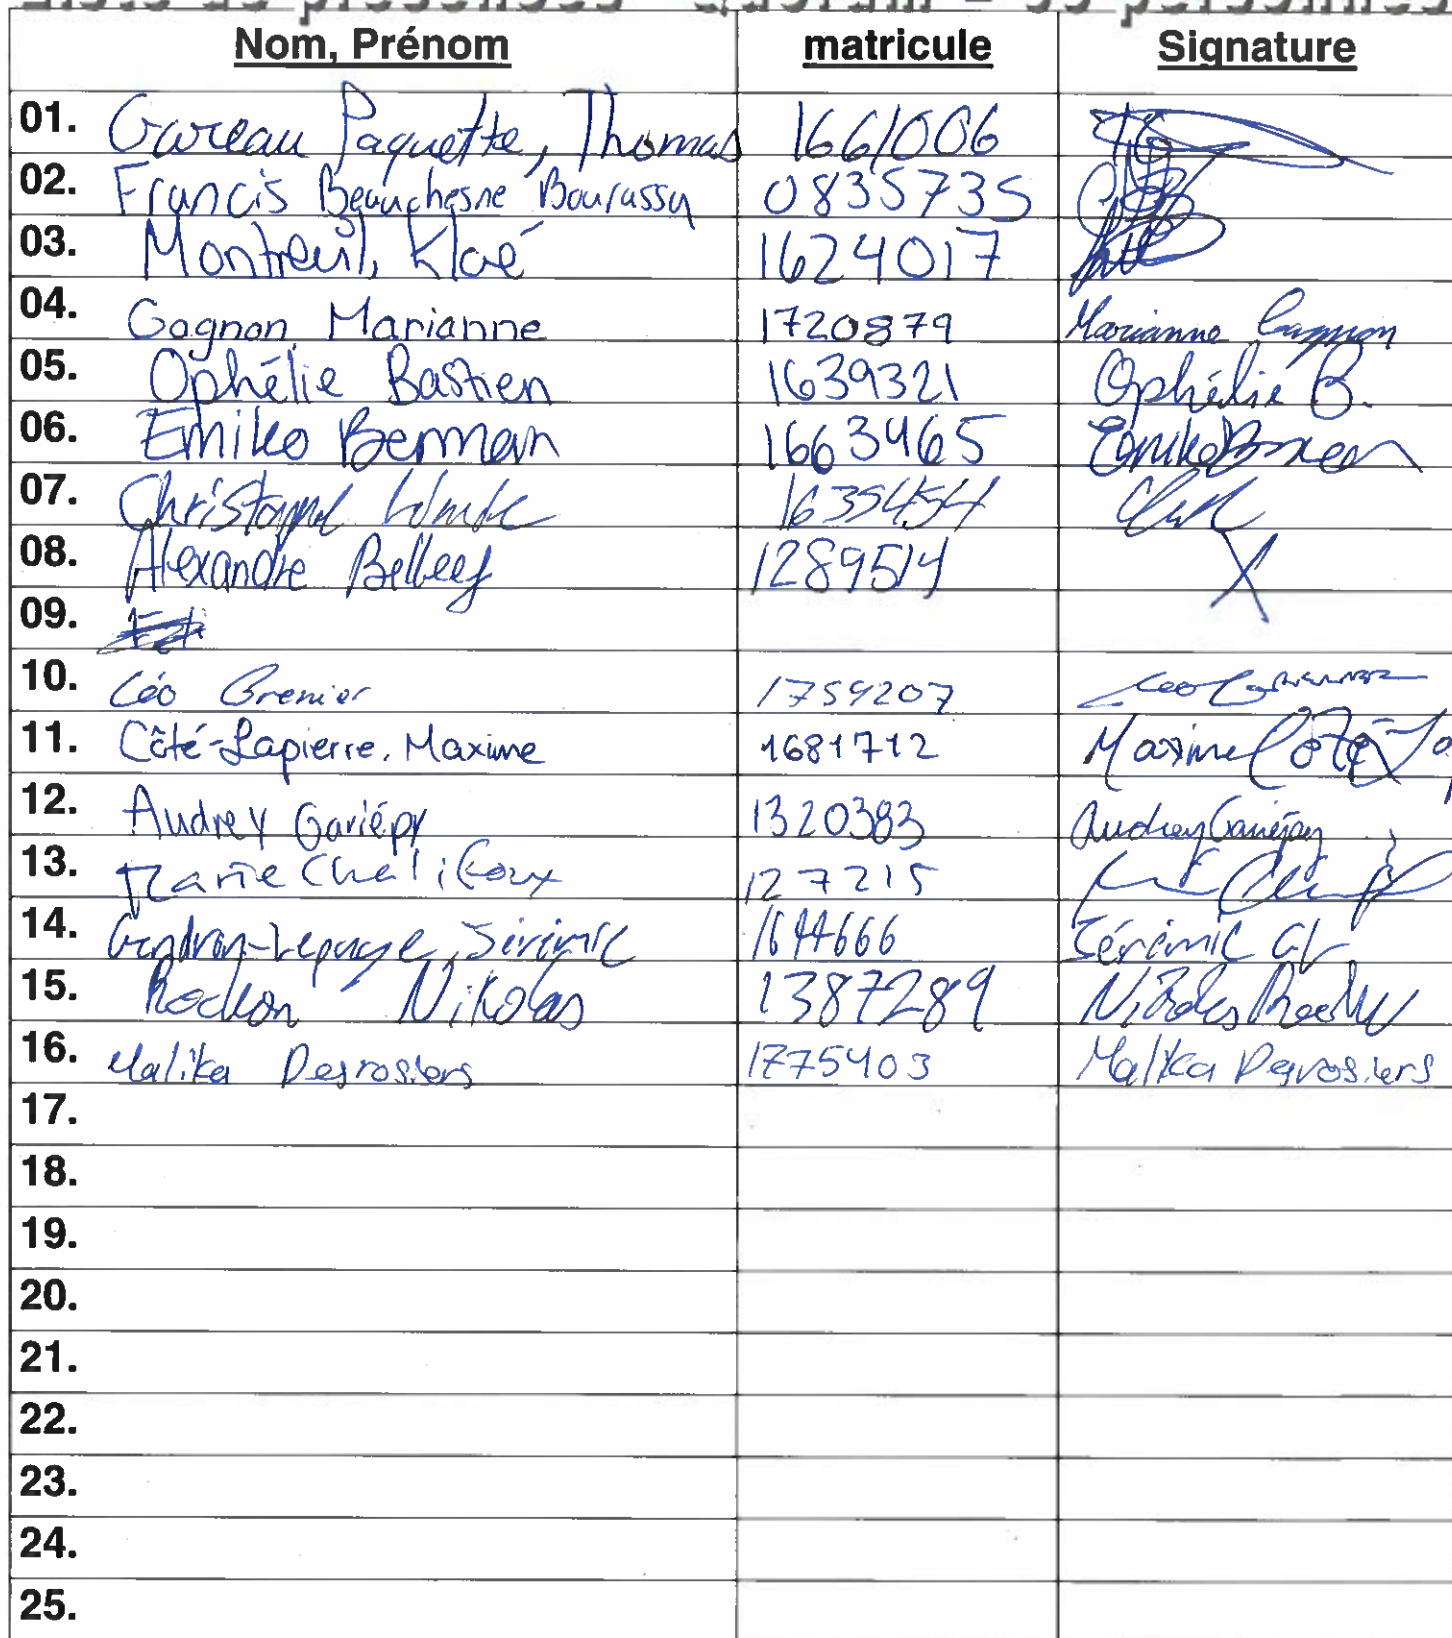 Liste de présences - Quorum = 30 personnes
Nom, Prénom matricule Signature
01. Gareau Paquette, Thomas 1661006
02. Francis Beauchesne Bourassa 0835735
03. Montreuil, Kloé 1624017
04. Gagnon, Marianne 1720879 Marianne Gagnon
05. Ophélie Bastien 1639321 Ophélie B.
06. Emiko Berman 1663465 Emiko Berman
07. Christophe
08. Alexandre 1289514 X
09.
10. Léo Grenier 1759207 Leo Grenier
11. Côté-Lapierre, Maxime 1681712 Maxime Côté-Lap
12. Audrey Gariépy 1320383 Audrey Gariépy
13. Marie Chalifoux 127215
14. Gendron-Lepage, Jérémie 1644666 Jérémie GL
15. Rochon Nikolas 1387289 Nikolas Rochon
16. Malika Desrosiers 1775403 Malika Desrosiers
17.
18.
19.
20.
21.
22.
23.
24.
25.